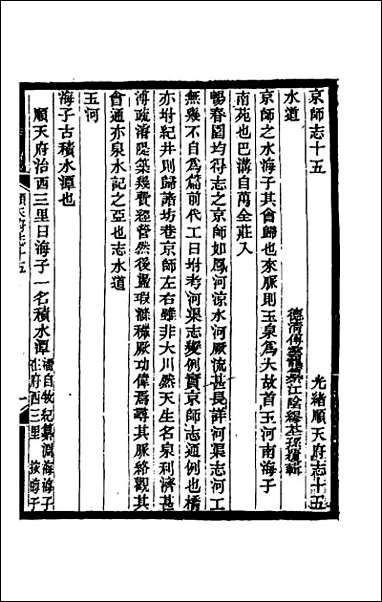 光緒順天府志十五
京師志十五
德清傅雲龍
江陰繆荃孫
輯
水道
京師之水海子其會歸也來脈則玉泉爲大故首玉河南海子
南苑也巴溝自萬全莊入
暢春園均得志之京師如鳳河涼水河厥流甚長詳河渠志河工
無幾不自爲篇前代工日坿考河渠志變例實京師志通例也橋
亦坿紀井則歸諸坊巷京師左右雖非大川然天生名泉利濟甚
溥疏濬隄築幾費經營然後
厥功偉焉尋其脈絡觀其
會通亦泉水記之亞也志水道
玉河
海子古積水潭也
順天府治西三里曰海子一名積水潭
潘自牧紀纂淵海海子
在府西三里
按海子
順天府志十五
一